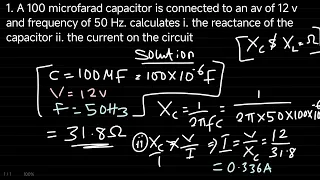 1. A 100 microfarad capacitor is connected to an av of 12 v
and frequency of 50 Hz. calculates i. the reactance of the
capacitor ii. the current on the circuit
Solution
[Xc & XL = Ω]
C = 100MF = 100×10⁻⁶F
V = 12V
F = 50Hz
Xc = 1/2πfc = 1/2π×50×100×10
= 31.8Ω
(ii) Xc/1 = V/I ⇒ I = V/Xc = 12/31.8
= 0.336A